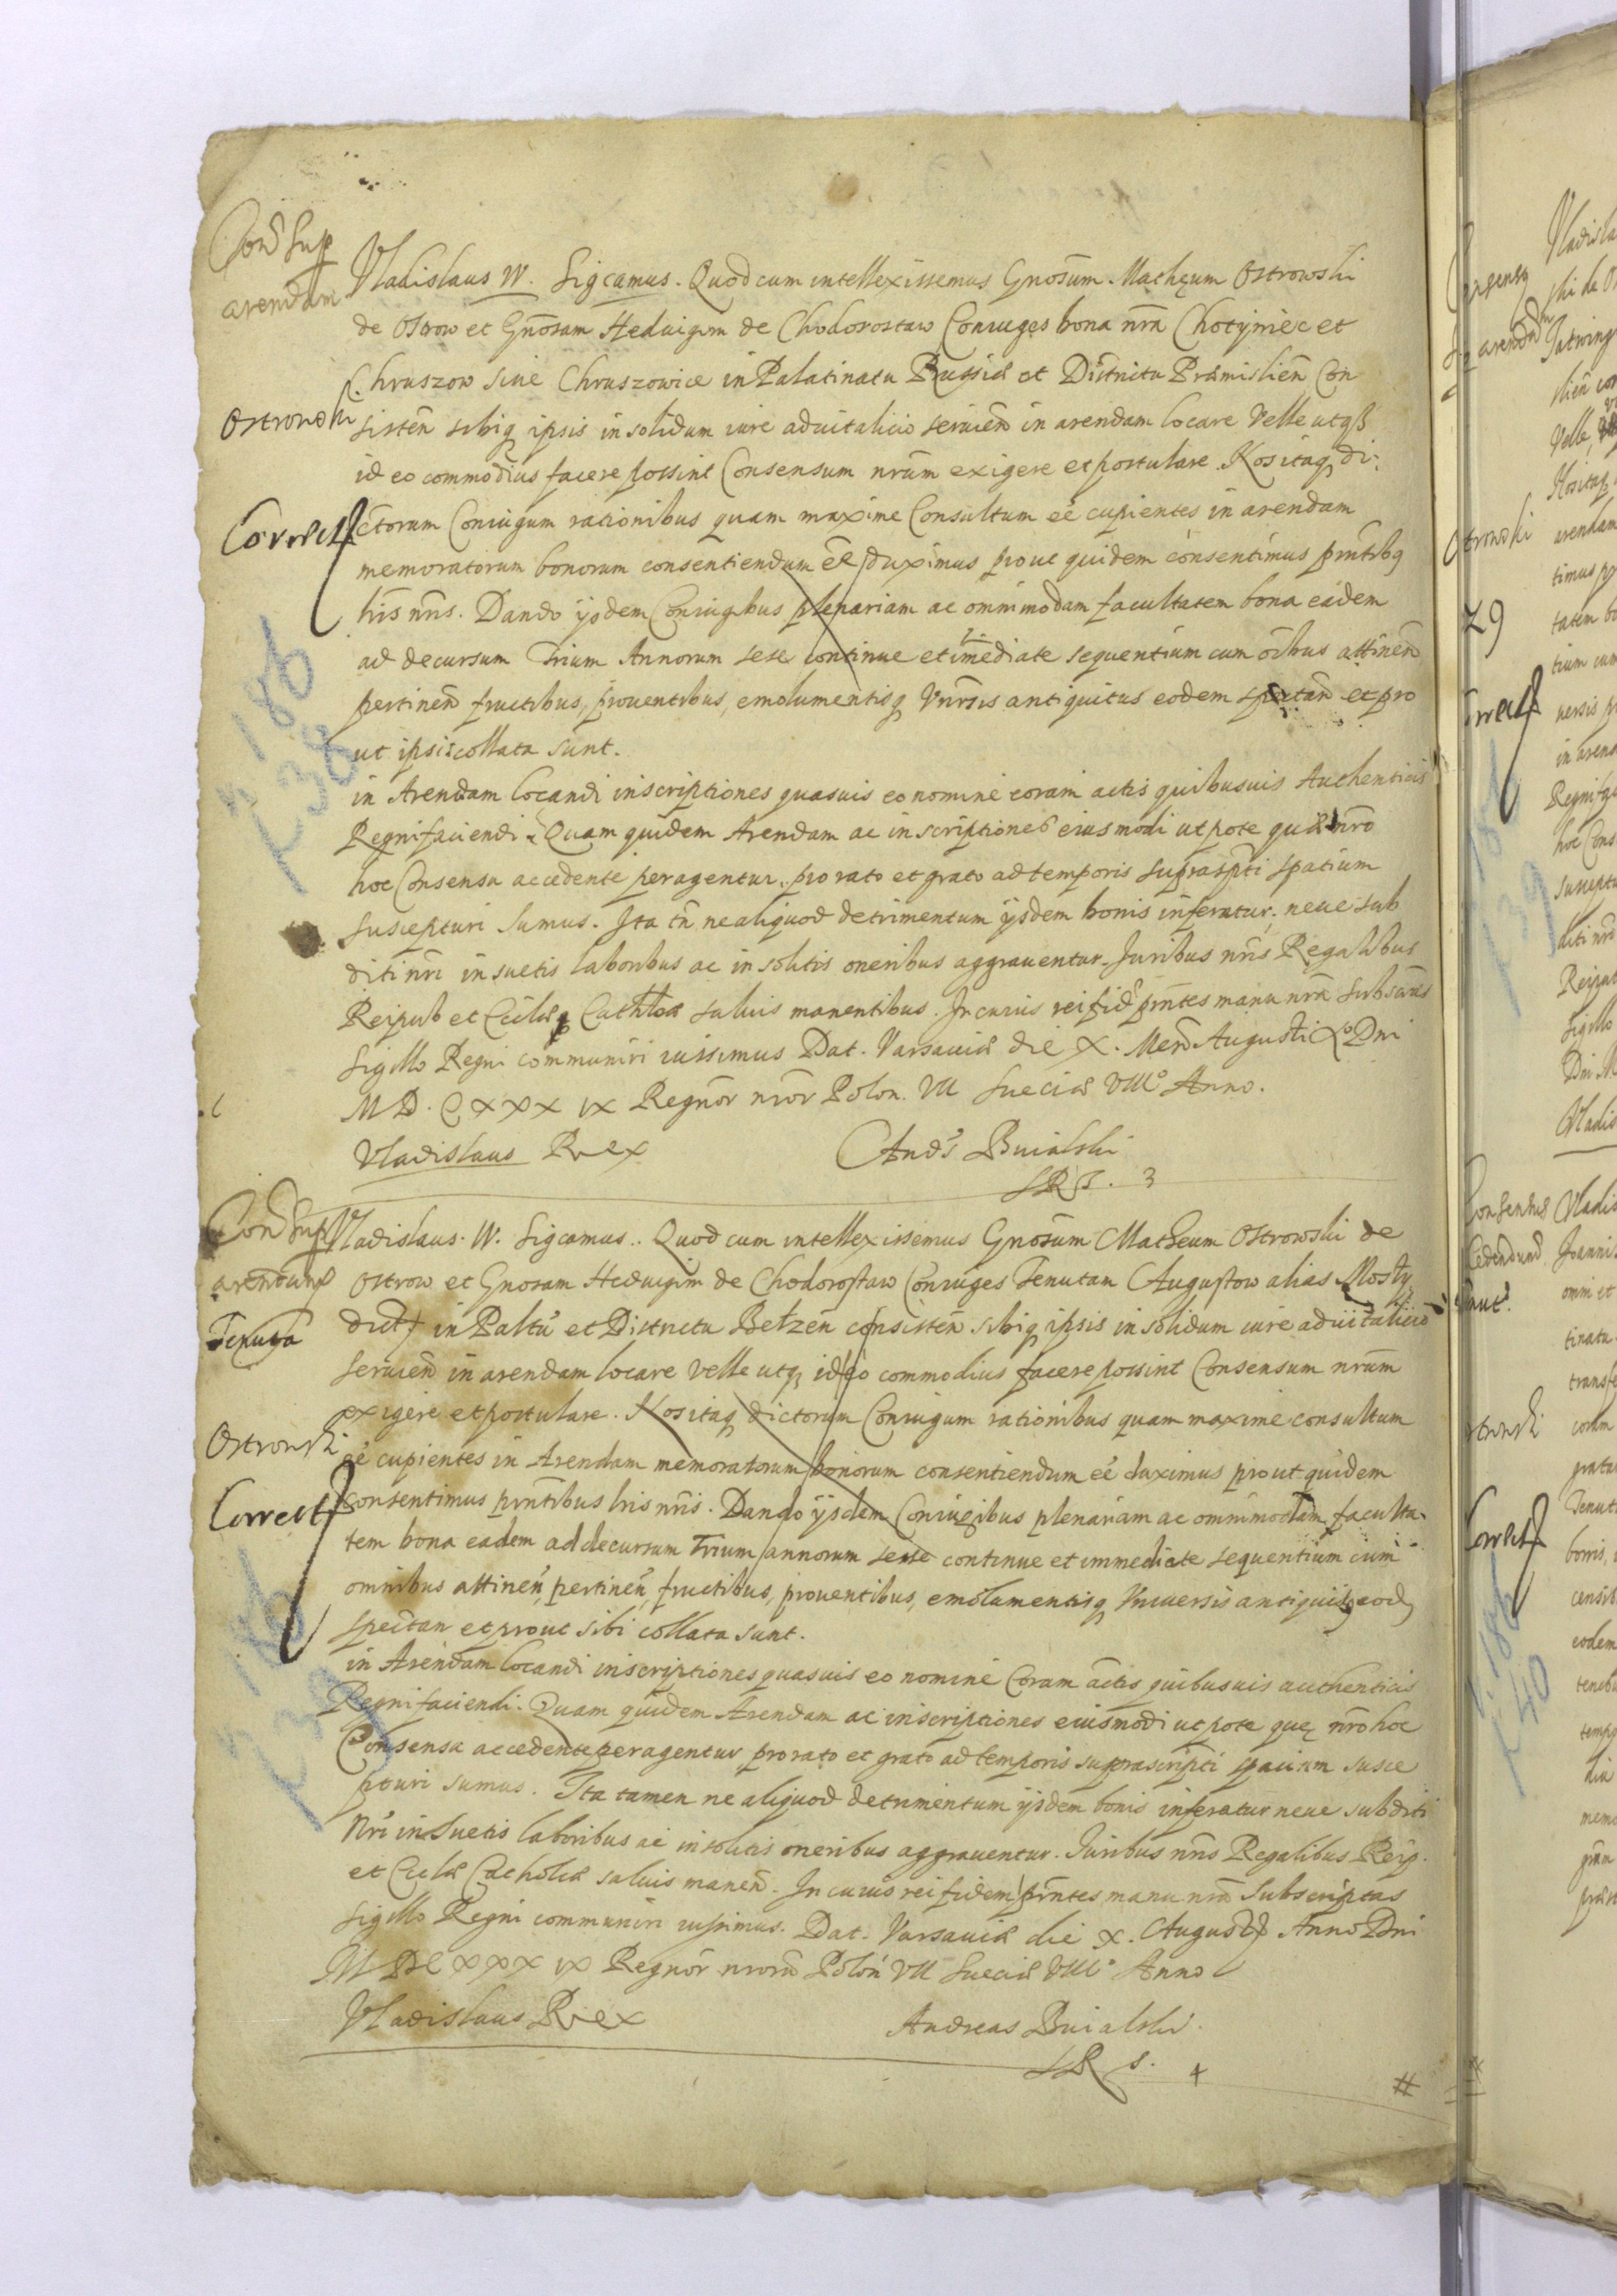 Cons sup
arendam
Vladislaus IV. Sigcamus. Quod cum intellexissemus Gnosum. Matheum Ostrowski
de Ostrow et Gnosam Hedvigim de Chodorostaw Coniuges bona nra Chotyniec et
Chruszow siue Chruszowice in Palatinatu Russiæ et Districtu Præmislien Con
Ostrowski
sisten sibiq ipsis in solidum iure aduitalicio seruien in arendam locare Velle utq
id eo commodius facere possint Consensum nrum exigere et postulare. Nos itaq di-
Correct
ctorum Coniugum rationibus quam maxime Consultum eē cupientes in arendam
memoratorum bonorum consentiendum eē duximus prout quidem consentimus prntibq
his nris. Dando ijsdem Coniugibus plenariam ac omnimodam facultatem bona eadem
ad decursum Trium Annorum sese continue et imediate sequentium cum oibus attinen
pertinen fructibus, prouentibus, emolumentisq Vnrsis antiquitus eodem spectan et pro
ut ipsis collata sunt.
186
38
in Arendam locandi inscriptiones quasuis eo nomine coram actis quibusuis Authenticis
Regni faciendi. Quam quidem Arendam ac inscriptiones eiusmodi utpote quæ nro
hoc Consensu accedente peragentur, pro rato et grato ad temporis suprasprti spatium
suscepturi sumus. Ita tn ne aliquod detrimentum ijsdem bonis inferatur, neue sub
diti nri insuetis laboribus ac insolitis oneribus aggrauentur. Juribus nris Regalibus
Reipub et Ecclæq Cathlcæ saluis manentibus. In cuius rei fid prntes manu nra
Sigillo Regni communiri iussimus Dat. Varsauiæ die X. Men Augusti Ao Dni
M D. C XXX IX Regnor nror Polon. VII Sueciæ VIIIo Anno.
Vladislaus Rex
Ands Buialski
SRS. 3
Cons sup
arendam
Tenuta
Vladislaus. IV. Sigcamus. Quod cum intellexissemus Gnosum Matheum Ostrowski de
Ostrow et Gnosam Heduigim de Chodorostaw Coniuges Tenutam Augustow alias Mosty
dict in Paltu et Districtu Belzen consisten sibiq ipsis in solidum iure aduitalicio
seruien in arendam locare velle utq id eo commodius facere possint Consensum nrum
exigere et postulare. Nos itaq dictorum Coniugum rationibus quam maxime consultum
Ostrowski
eē cupientes in Arendam memoratorum bonorum consentiendum eē duximus prout quidem
Correct
consentimus prntibus his nris. Dando ijsdem Coniugibus plenariam ac omnimodam faculta-
tem bona eadem ad decursum Trium annorum sese continue et immediate sequentium cum
omnibus attinen, pertinen, fructibus, prouentibus, emolumentisq Vniuersis antiquitq eod
spectan et prout sibi collata sunt.
186
39
in Arendam locandi inscriptiones quasuis eo nomine Coram actis quibusuis authenticis
Regni faciendi. Quam quidem Arendam ac inscriptiones eiusmodi utpote quę nro hoc
Consensu accedente peragentur pro rato et grato ad temporis suprascripti spatium susce
pturi sumus. Ita tamen ne aliquod detrimentum ijsdem bonis inferatur neue subditi
nri insuetis laboribus ac insolitis oneribus aggrauentur. Juribus nris Regalibus Reip.
et Ecclæ Catholcæ saluis manen. In cuius rei fidem prntes manu nra Subscriptas
Sigillo Regni communiri iussimus. Dat. Varsauiæ die X. August Anno Dni
M DC XXX IX Regnor nroru Polon VII Sueciæ VIIIo Anno
Vladislaus Rex
Andreas Buialski.
SRS. 4
#